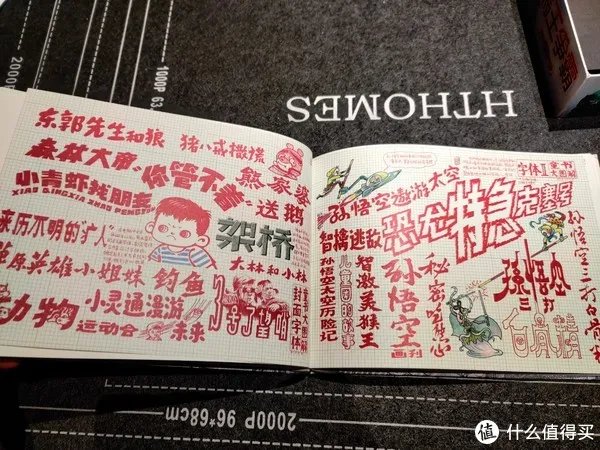 HTHOMES
1000P
63
2000P
东郭先生和狼
猪八戒撒谎
森林大
你管不着
熬家婆
小青虾找朋友
XIAO QINGXIA ZHAO PENGYOU
送鹅
来历不明的"犷人"
架桥
草原英雄小姐妹
钓鱼
大林和小林
动物
运动会
小灵通漫游
未来
3号了望哨
封面字体
孙悟空遨游太空
字体II
童书
大图解
智擒逃敌
恐龙特急克塞号
孙悟空太空历险记
儿童团的故事
智激美猴王
孙悟空
画刊
秘密咒语
孙悟空
三打
白骨精
孙悟空三打白骨精
2000P 96*68cm
值 什么值得买